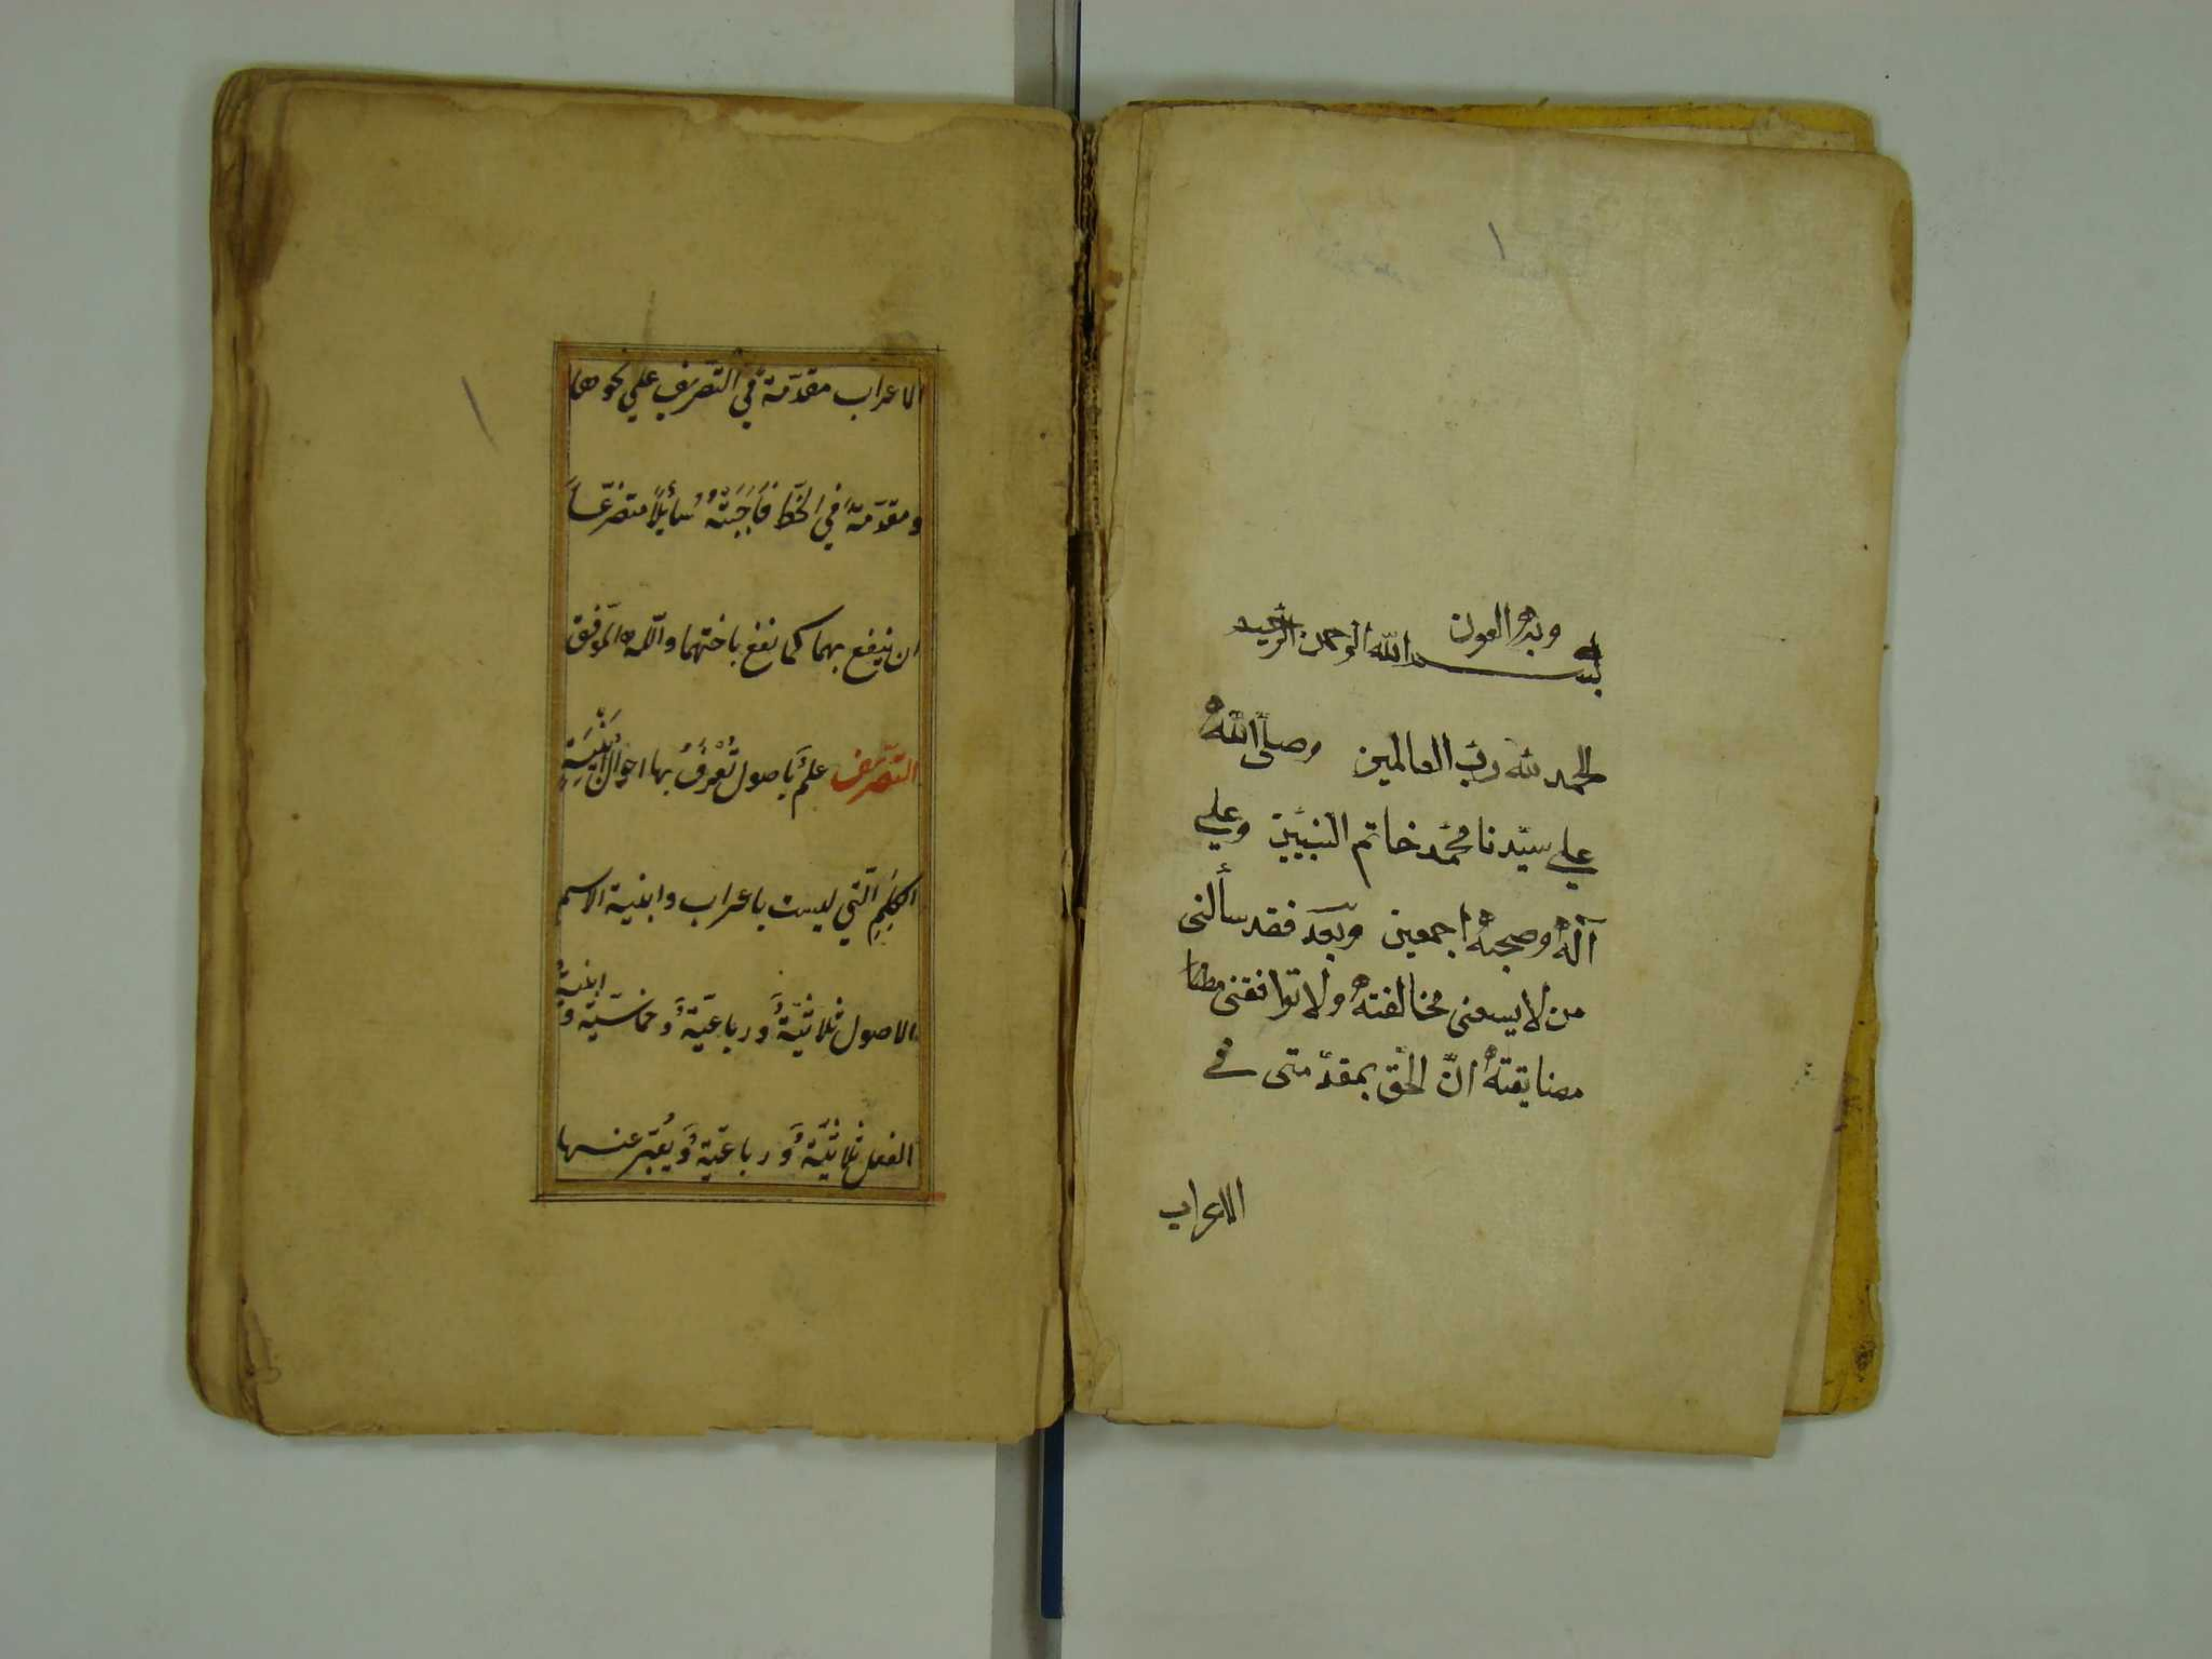 ١
وبه العون
بسم الله الرحمن الرحيم
الحمد لله رب العالمين وصلى الله
علي سيّدنا محمّد خاتم النبيين وعلي
آله وصحبه اجمعين وبعد فقد سألنى
من لا يسعنى مخالفته ولا توافقنى
مضايقته انّ الحق بمقدّمتى في
الاعراب
الاعراب مقدّمة في التصريف علي نحوها
ومقدّمةً في الخطّ فَأَجَبتُهُ سُأيلاً متضرّعاً
ان ينفع بهما كما نفع باختهما واللّه الموّفق
التّصريف علمٌ بأصول تُعْرَفُ بها احوال اَبْنِيَةِ
الكَلِمِ الّتي ليست باعراب وابنية الاسم
الاصول ثلاثيّةٌ ورباعيّةٌ وخماسيّة وابنيةُ
الفعل ثلاثيّةٌ ورباعيّةٌ ويُعبّر عنها